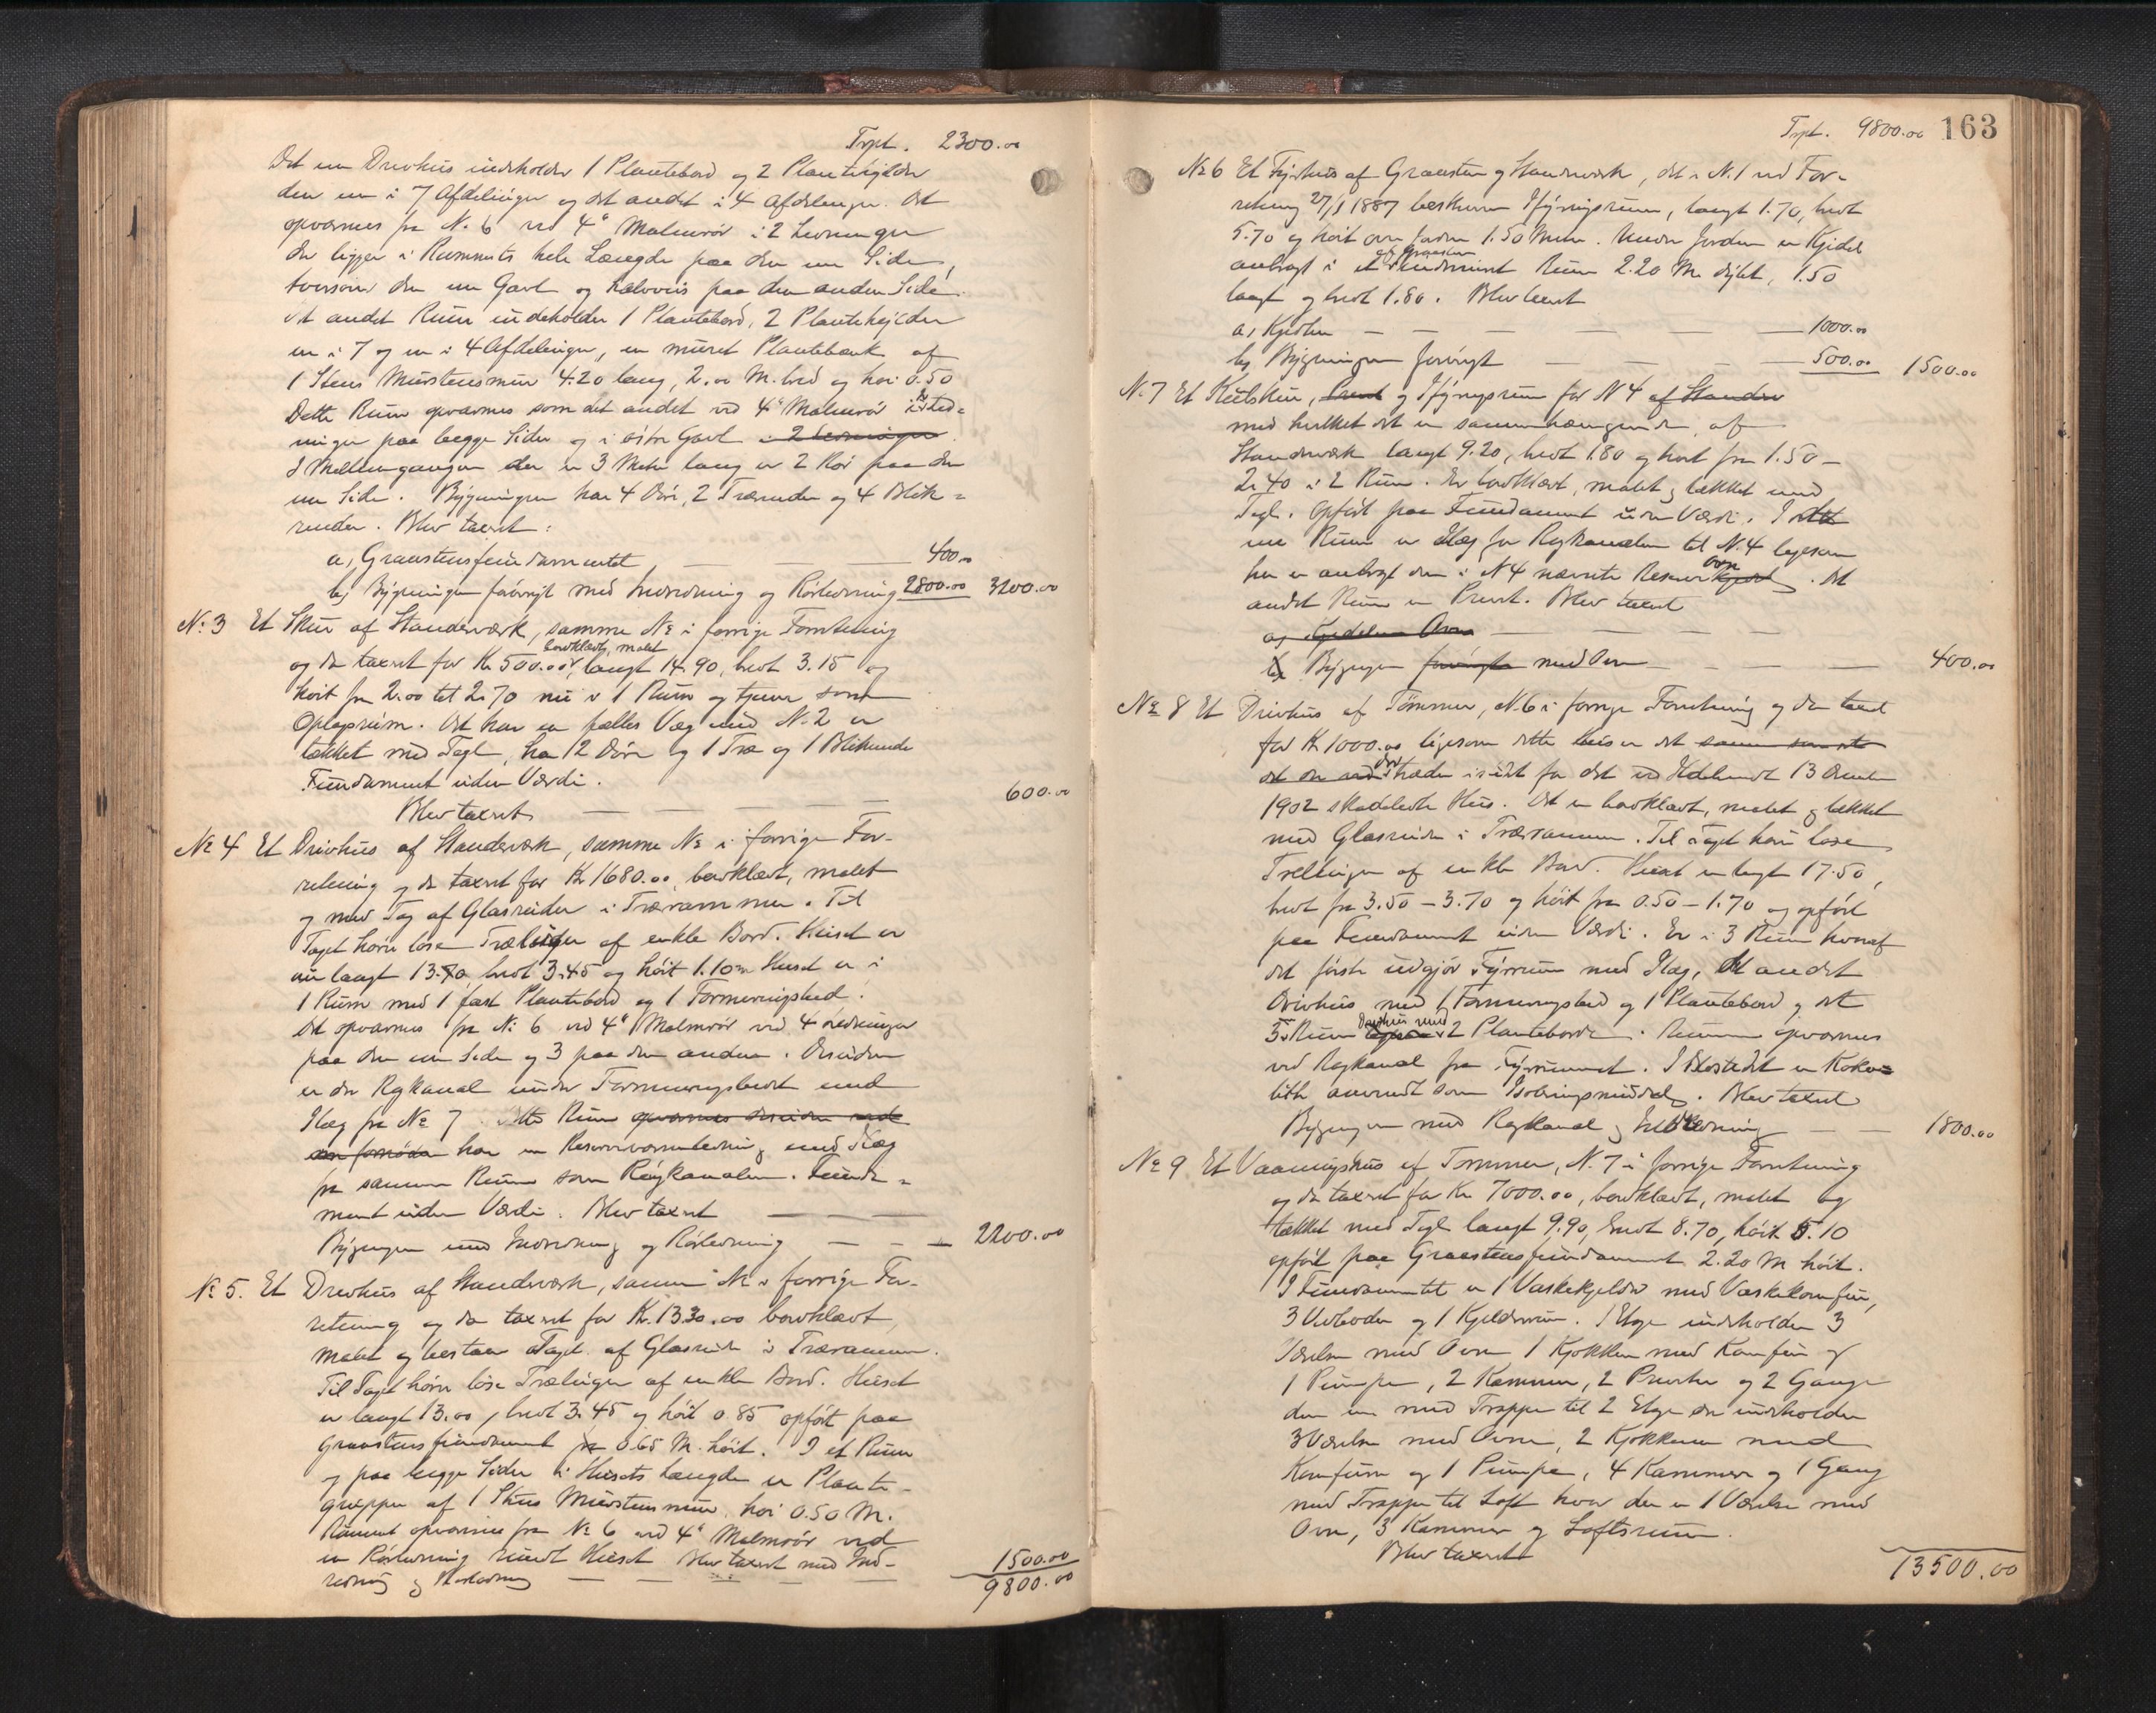 Trpt. 2300.00
Det en Drivhus indeholder 1 Plantebord og 2 Plantehylder
den en i 7 Afdelinger og det andet i 4 Afdelinger. Det
opvarmes fra No 6 ved 4" Malmrör i 2 Ledninger
der ligger i Rummets hele Længde paa den ene Side,
tversover den ene Gavl og halvveis paa den anden Side.
Det andet Rum indeholder 1 Plantebord, 2 Plantehylder
en i 7 og en i 4 Afdelinger, en muret Plantebænk af
1 Stens Murstensmur 4.20 lang, 2.00 M. bred og höi 0.50
Dette Rum opvarmes som det andet ved 4" Malmrör i Led-
ninger paa begge Sider og i östre Gavl i 2 Ledninger.
I Mellemgangen der er 3 Meter lang er 2 Rör paa den
ene Side. Bygningen har 4 Döre, 2 Trærender og 4 Blik-
render. Blev taxeret:
a, Graastensfundamentet 400.00
b, Bygningen forövrigt med Indredning og Rörledning 2800.00 3200.00
No 3 Et Skur af Standerværk, samme No i forrige Forretning
og da taxeret for Kr 500.00, bordklædt, malet, langt 14.90, bredt 3.15 og
höit fra 2.00 til 2.70 nu i 1 Rum og tjener som
Oplagsrum. Det har en fælles Væg med No. 2 er
tækket med Tegl, har 12 Döre og 1 Træ og 1 Blikrende
Fundament uden Værdi.
Blev taxeret 600.00
No 4 Et Drivhus af Standerværk, samme No i forrige For-
retning og da taxeret for Kr 1680.00, bordklædt, malet
og med Tag af Glasruder i Trærammer. Til
Taget hörer löse Trælemmer af enkle Bord. Huset er
nu langt 13.70, bredt 3.45 og höit 1.10 m Huset er i
1 Rum med 1 fast Plantebord og 1 Formeringsbed.
Det opvarmes fra No 6 ved 4" Malmrör ved 4 Ledninger
paa den ene Side og 3 paa den anden. Desuden
er der Rögkanal under Formeringsbedet med
Ilæg fra No 7. Dette Rum opvarmes desuden ved
om fornöden har en Reservevarmeledning med Ilæg
fra samme Rum som Rögkanalen. Funda-
ment uden Værdi. Blev taxeret
Bygningen med Indredning og Rörledning 2200.00
No 5. Et Drivhus af Standerværk, samme No i forrige For-
retning og da taxeret for Kr. 1330.00 bordklædt,
malet og bestaar Taget af Glasruder i Trærammer.
Til Taget hörer löse Trælemmer af enkle Bord. Huset
er langt 13.00, bredt 3.45 og höit 0.85 opfört paa
Graastensfundament fra 0.65 M. höit. I et Rum
og paa begge Sider i Husets Længde er Plante-
grupper af 1 Stens Murstensmur, höi 0.50 M.
Rummet opvarmes fra No 6 ved 4" Malmrör ved
en Rörledning rundt Huset Blev taxeret med Ind-
redning og Rörledning 1500.00
9800.00
163
Trpt. 9800.00
No 6 Et Fyrhus af Graasten og Standerværk, det i No. 1 ved For-
retning 27/8 1887 beskrevne Ifyringsrum, langt 1.70, bredt
5.70 og höit over Jorden 1.50 Meter. Under Jorden er Kjedel
anbragt i et af Graasten indmuret Rum 2.20 M. dybt, 1.50
langt og bredt 1.80. Blev taxeret
a, Kjedlen 1000.00
b, Bygningen forövrigt 500.00 1500.00
No. 7 Et Kulskur, Privet og Ifyringsrum for No 4 af Stander
med hvilket det er sammenhængende, af
Standerværk langt 9.20, bredt 1.80 og höit fra 1.50-
2.40 i 2 Rum. Er bordklædt, malet, tækket med
Tegl. Opfört paa Fundament uden Værdi. I det
ene Rum er Ilæg for Rögkanalen til No. 4 ligesom
her er anbragt den i No 4 nævnte Reserve ovn Kjedel. Det
andet Rum er Privet. Blev taxeret
a, Kjedelen Ovn
b, Bygningen forövrigt med Ovn 400.00
No 8 Et Drivhus af Tömmer, No. 6 i forrige Forretning og da taxeret
for Kr 1000.00 ligesom dette hus er det samme som
det der traadte istedet for det ved Ildebrand 13 Decemb
1902 skadelidte Hus. Det er bordklædt, malet og tækket
med Glasruder i Trærammer. Til Taget hörer löse
Trælemmer af enkle Bord. Huset er langt 17.50,
bredt fra 3.50 - 3.70 og höit fra 0.50 - 1.70 og opfört
paa Fundament uden Værdi. Er i 3 Rum hvoraf
det förste udgjör Fyrrum med Ilæg, det andet
Drivhus med 1 Formeringsbed og 1 Plantebord og det
3die Rum Drivhus med 2 Planteborde. Rummene opvarmes
ved Rögkanal fra Fyrrummet. I Ildstedet er Koko-
lith anvendt som Isoleringsmiddel. Blev taxeret
Bygningen med Rögkanal og Indredning 1800.00
No 9 Et Vaaningshus af Tömmer, No. 7 i forrige Forretning
og da taxeret for Kr. 7000.00, bordklædt, malet og
tækket med Tegl langt 9.90, bredt 8.70, höit 5.10
opfört paa Graastensfundament 2.20 M höit.
I Fundamentet er 1 Vaskekjelder med Vaskekomfur,
3 Vedboder og 1 Kjelderrum. 1 Etage indeholder 3
Værelser med Ovne 1 Kjökken med Komfur og
1 Pumpe, 2 Kammer, 2 Priveter og 2 Gange
den ene med Trappe til 2 Etage der indeholder
3 Værelser med Ovne, 2 Kjökkener med
Komfurer og 1 Pumpe, 4 Kammer og 1 Gang
med Trappe til Loft hvor der er 1 Værelse med
Ovn, 3 Kammer og Loftsrum.
Blev taxeret 13500.00